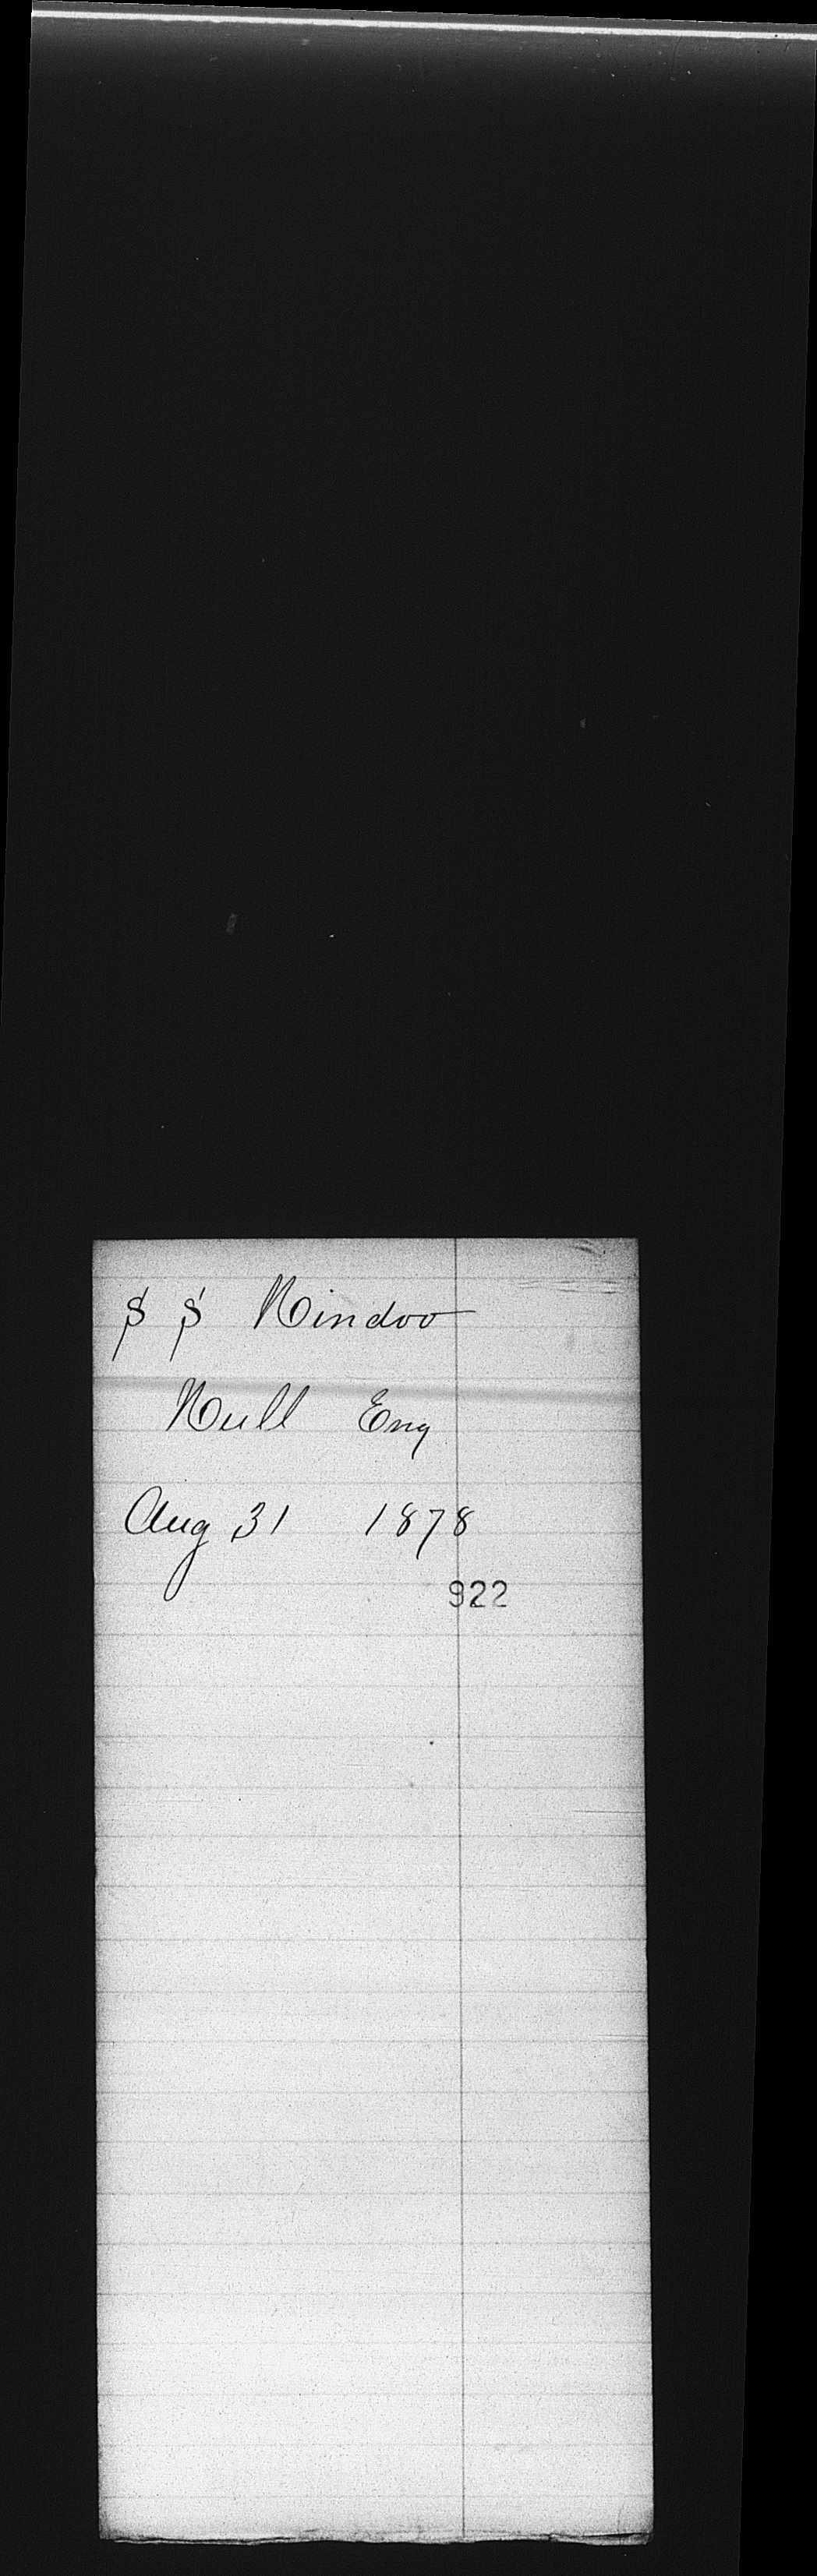 S S Hindoo
Hull Eng
Aug 31 1878
922